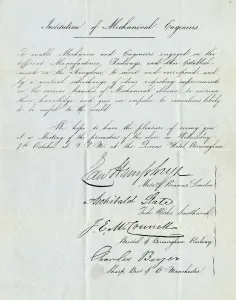 Institution of Mechanical Engineers
To enable Mechanics and Engineers engaged in the
different Manufactories, Railways and other Establish-
ments in the Kingdom, to meet and correspond and
by a mutual interchange of ideas respecting improvements
in the various branches of Mechanical Science to increase
their knowledge and give an impulse to inventions likely
to be useful to the world
We hope to have the pleasure of seeing you
at a Meeting of the promoters of the above on Wednesday
7th October at 7 P M at the Queens Hotel Birmingham
Edw Humphrys
London
Archibald Slate
J. E. McConnell
Bristol & Birmingham Railway
Charles Beyer
Sharp Bros & Co Manchester